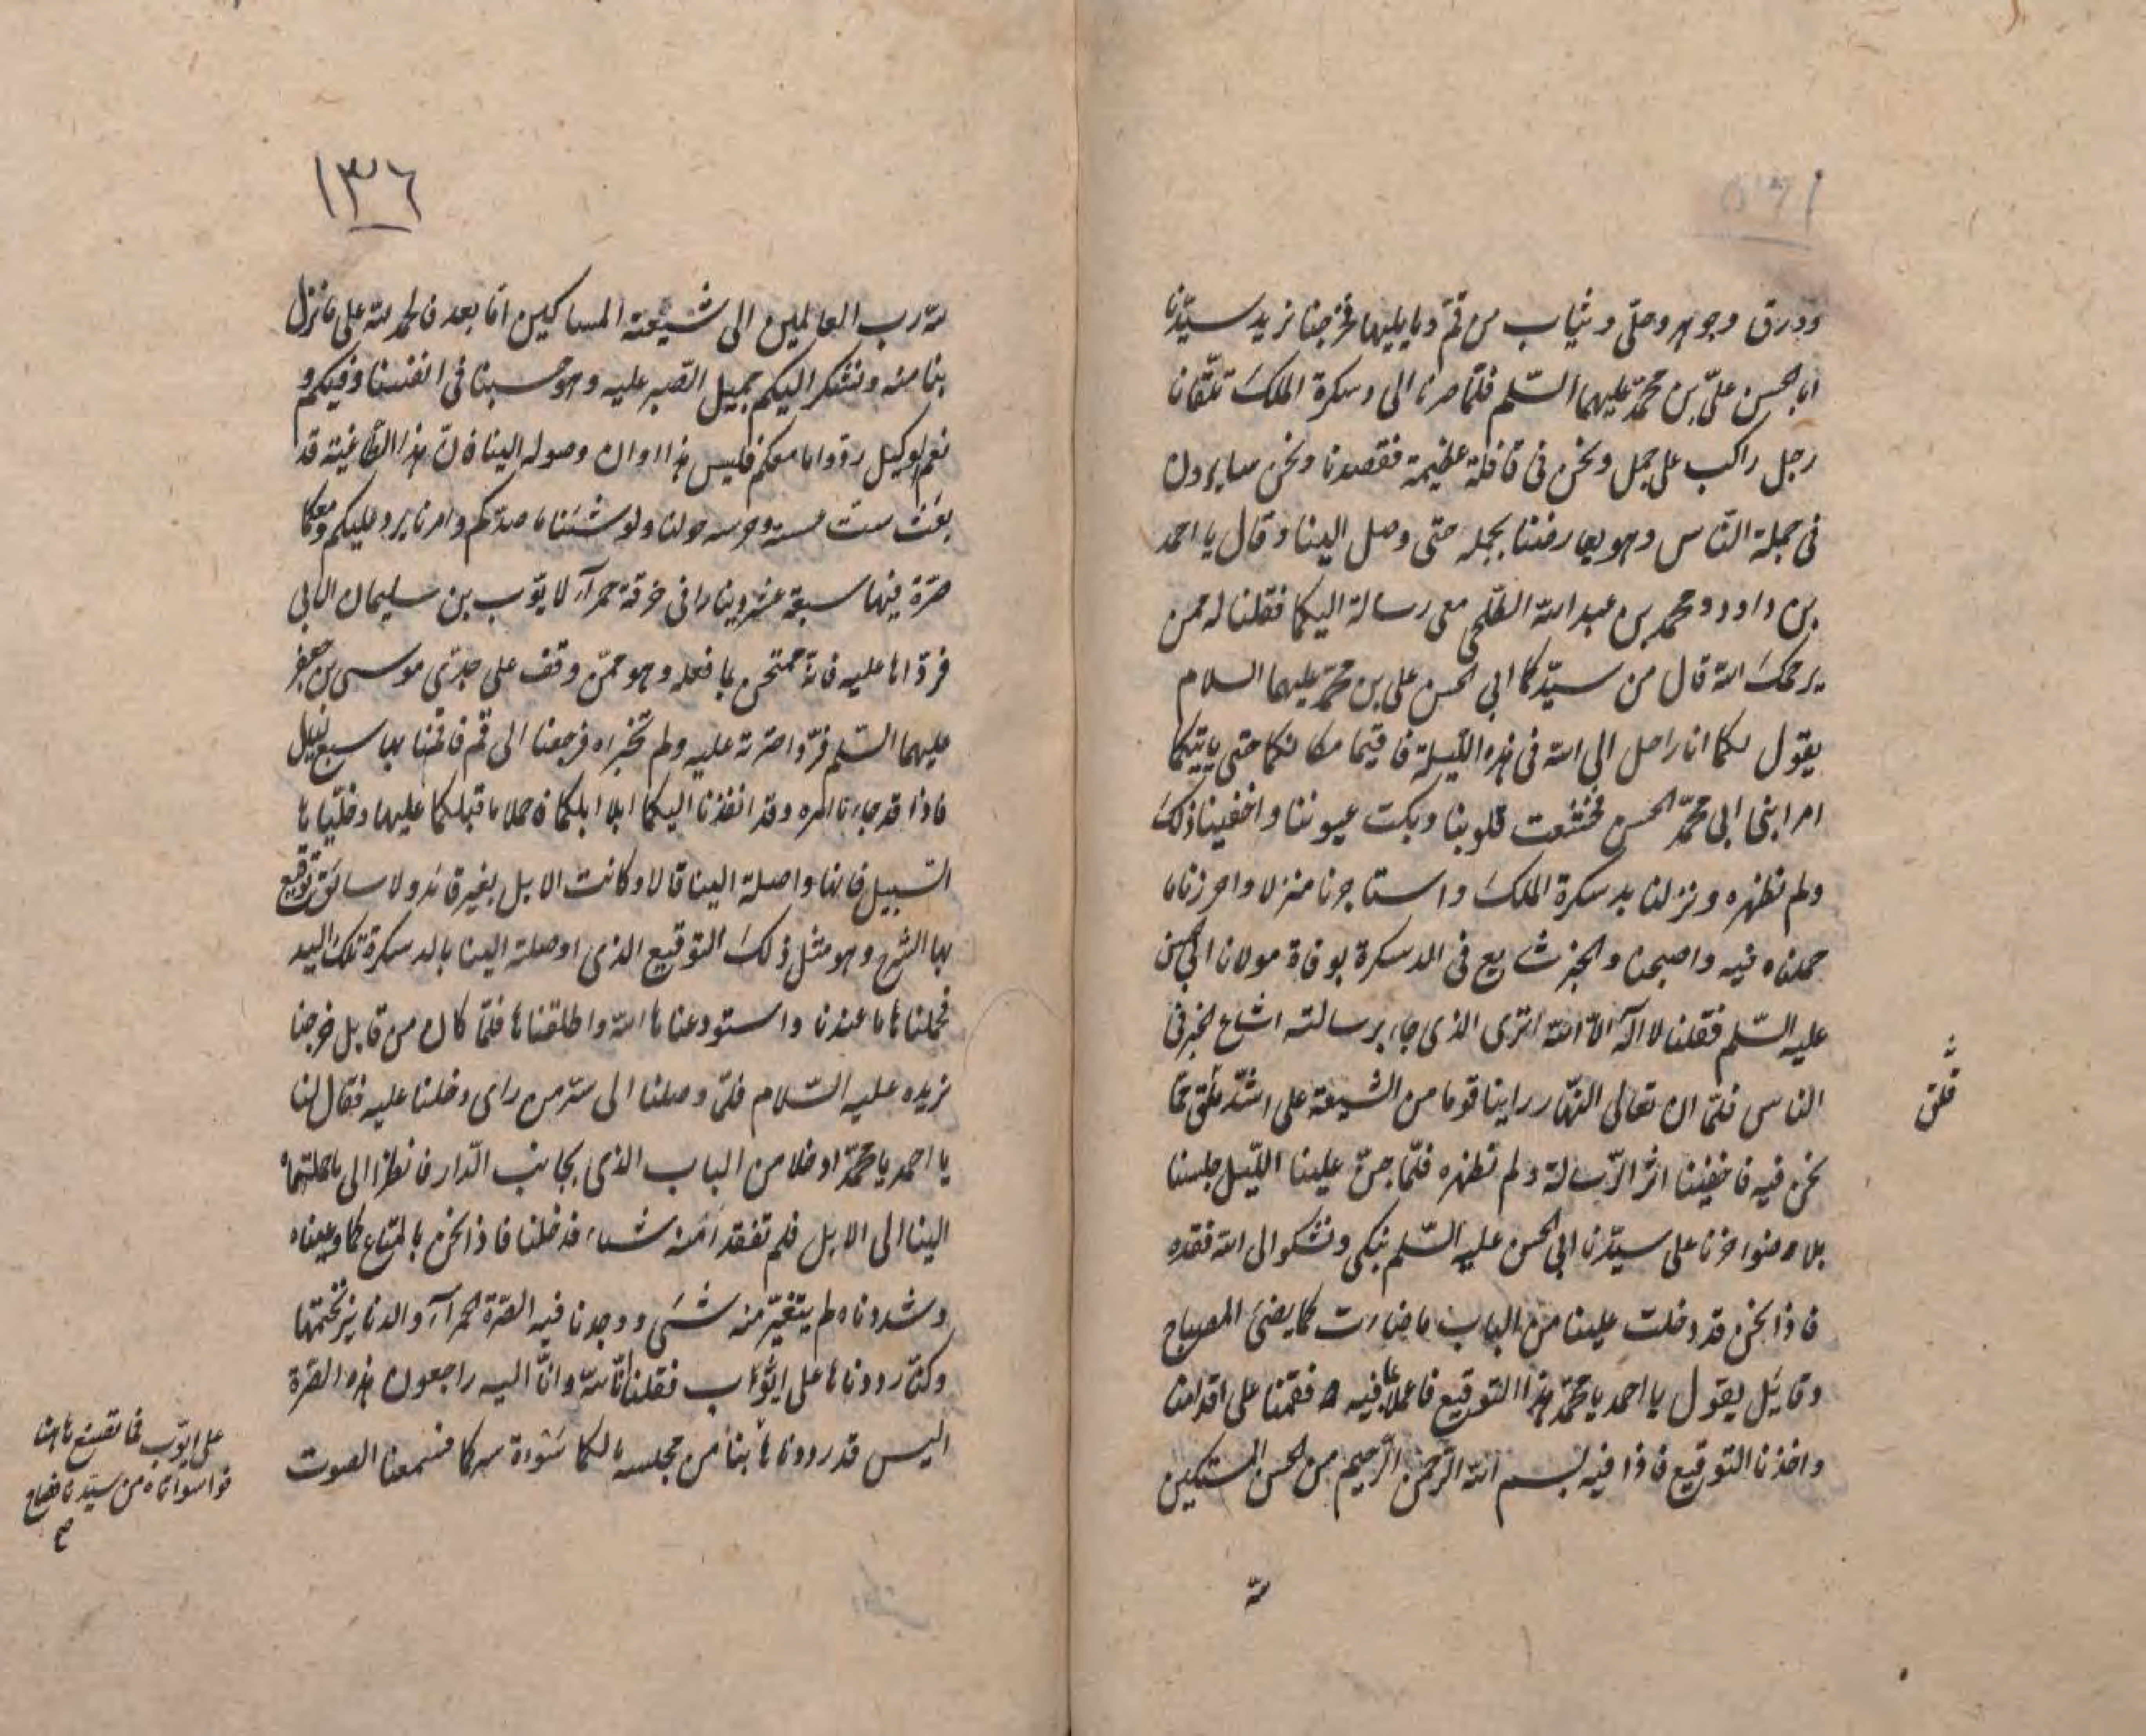 وورق وجوهر وحلى وثياب من قم وما يليها فخرجنا نريد سيدنا
ابا الحسن علي بن محمد عليهما السلم فلما صرنا الى دسكرة الملك تلقانا
رجل راكب على جمل ونحن فى قافلة عظيمة فقصدنا ونحن سايرون
فى جملة الناس وهو يعارضنا بجمله حتى وصل الينا وقال يا احمد
بن داود ومحمد بن عبد الله الطلحى معى رسالة اليكما فقلنا له ممن
يرحمك الله قال من سيدكما ابى الحسن على بن محمد عليهما السلام
يقول لكما انا راحل الى الله فى هذه الليلة فاقيما مكانكما حتى ياتيكما
امر ابنى ابى محمد الحسن فخشعت قلوبنا وبكت عيوننا واخفينا ذلك
ولم نظهره ونزلنا بدسكرة الملك واستاجرنا منزلا واحرزنا ما
حملناه فيه واصبحنا والخبر شايع فى الدسكرة بوفاة مولانا ابى الحسن
عليه السلم فقلنا لا اله الا الله اترى الذى جاء برسالته اشاع الخبر فى
الناس فلما ان تعالى النهار راينا قوما من الشيعة على اشد قلق مما
نحن فيه فاخفينا اثر الرسالة ولم نظهره فلما جن علينا الليل جلسنا
بلا ضوء حزنا على سيدنا ابى الحسن عليه السلم نبكى ونشكو الى الله فقده
فاذا نحن قد دخلت علينا من الباب فاضاءت كما يضئ المصباح
وقايل يقول يا احمد يا محمد هذا التوقيع فاعملا بما فيه فقمنا على اقدامنا
واخذنا التوقيع فاذا فيه بسم الله الرحمن الرحيم من الحسن المستكين
لله
قلق
١٣٦
لله رب العالمين الى شيعته المساكين اما بعد فالحمد لله على ما نزل
بنا منه ونشكر اليكم جميل الصبر عليه وهو حسبنا فى انفسنا وفيكم و
نعم الوكيل ردوا ما معكم فليس هذا اوان وصوله الينا فان هذا الطاغية قد
حولنا ولو شئنا ما صدكم وامرنا يرد عليكم ومعكما
صرة فيها سبعة عشر دينارا فى خرقة حمراء لايوب بن سليمان الابى
فرداها عليه فانه ممتحن بما فعله وهو ممن وقف على جدى موسى بن جعفر
عليهما السلم فردا صرته عليه ولم تخبراه فرجعنا الى قم فاقمنا بها سبع ليال
فاذا قد جاءنا امره وقد انفذنا اليكما ابلا ابلكما فاحملا ما قبلكما عليها وخليا لها
السبيل فانها واصلة الينا قالا وكانت الابل بغير قائد ولا سائق توقيع
بها الشرح وهو مثل ذلك التوقيع الذى اوصلته الينا بالدسكرة تلك اليد
فحملناها ما عندنا واستودعناها الله واطلقناها فلما كان من قابل خرجنا
نريده عليه السلام فلما وصلنا الى سر من راى دخلنا عليه فقال لنا
يا احمد يا محمد ادخلا من الباب الذى بجانب الدار فانظرا الى ما حملتماه
الينا الى الابل فلم تفقد امنه شياء فدخلنا فاذا نحن بالمتاع كما وعيناه
وشددناه لم يتغير منه شئ ووجدنا فيه الصرة الحمراء والدنانير بختمها
وكنا رددناها على ايوب فقلنا انا لله وانا اليه راجعون هذه الصرة
اليس قد رددناها من مجلسه مالكما سوءة سركما فسمعنا الصوت
على ايوب فما نصنع هاهنا
فواسوأتاه من سيدنا فصاح